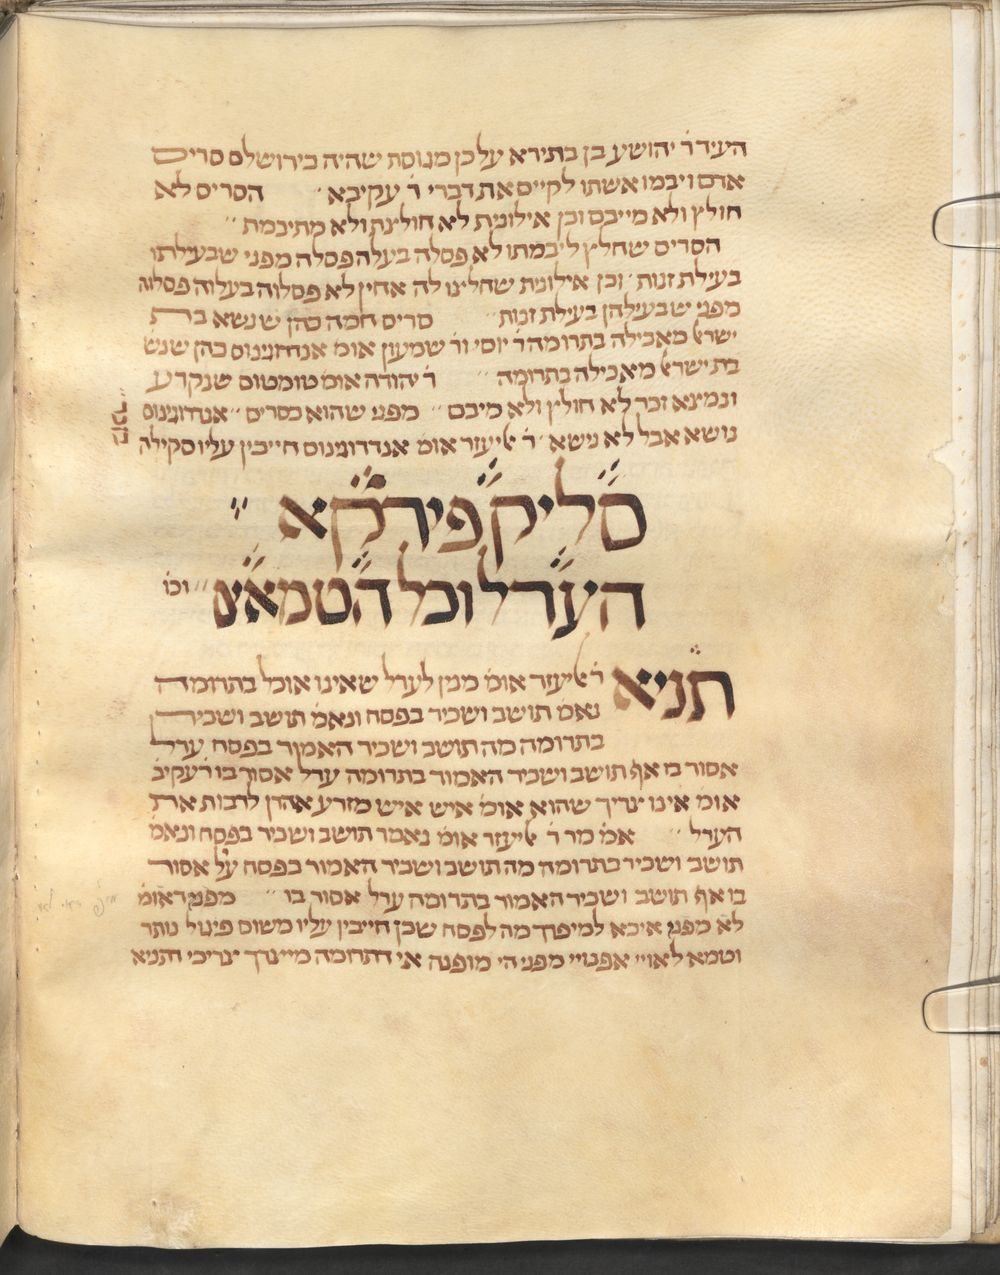 העיד ר׳ יהושע בן בתירא על בן מגוסת שהיה בירושלם סריס
אדם ויבמו אשתו לקיים את דברי ר׳ עקיבא ׳ הסריס לא
חולץ ולא מייבם וכן אילונית לא חולצת ולא מתיבמת ׳׳
הסריס שחלץ ליבמתו לא פסלה בעלה פסלה מפני שבעילתו
בעילת זנות ׳ וכן אילונית שחלצו לה אחין לא פסלוה בעלוה פסלוה
מפני שבעילתן בעילת זנות ׳׳ סריס חמה כהן שנשא בת
ישרא׳ מאכילה בתרומה ר׳ יוסי ור׳ שמעון אומ׳ אנדרוגינוס כהן שנש׳
בת ישרא׳ מאכילה בתרומה ׳׳ ר׳ יהודה אומ׳ טומטום שנקרע
ונמצא זכר לא חולץ ולא מיבם ׳׳ מפני שהוא כסריס ׳׳ אנדרוגינוס
נושא אבל לא נישא ׳ ר׳ אליעזר אומ׳ אנדרוגינוס חייבין עליו סקילה
כזכר
סליק פירקא ׳׳
הערל וכל הטמאים ׳׳ וכו׳
תניא ר׳ אליעזר אומ׳ מנין לערל שאינו אוכל בתרומה
נאמ׳ תושב ושכיר בפסח ונאמ׳ תושב ושכיר
בתרומה מה תושב ושכיר האמור בפסח ערל
אסור בו אף תושב ושכיר האמור בתרומה ערל אסור בו ר׳ עקיב׳
אומ׳ אינו צריך שהוא אומ׳ איש איש מזרע אהרן לרבות את
הערל ׳׳ אמ׳ מר ר׳ אליעזר אומ׳ נאמר תושב ושכיר בפסח ונאמ׳
תושב ושכיר בתרומה מה תושב ושכיר האמור בפסח על אסור
בו אף תושב ושכיר האמור בתרומה ערל אסור בו ׳׳ מפני דאומ׳
לא מפני איכא למיפרך מה לפסח שכן חייבין עליו משום פיגול נותר
וטמא לאויי אפנויי מפני הי מופנה אי דתרומה מיצרך צריכי דתניא